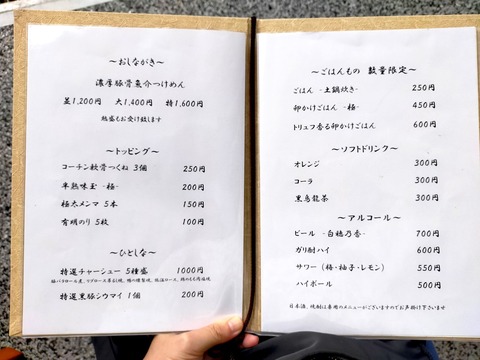 ～おしながき～
濃厚豚骨魚介つけめん
並1,200円 大1,400円 特1,600円
熱盛もお受け致します
～トッピング～
コーチン軟骨つくね 3個 250円
半熟味玉 -極- 200円
極太メンマ 5本 150円
有明のり 5枚 100円
～ひとしな～
特選チャーシュー 5種盛 1000円
特選黒豚シウマイ 1個 200円
～ごはんもの 数量限定～
ごはん -土鍋炊き- 250円
卵かけごはん -極- 450円
トリュフ香る卵かけごはん 600円
～ソフトドリンク～
オレンジ 300円
コーラ 300円
黒烏龍茶 300円
～アルコール～
ビール -白穂乃香- 700円
ガリ酎ハイ 600円
サワー (梅・柚子・レモン) 550円
ハイボール 500円
日本酒、焼酎は専用のメニューがございますのでお声掛け下さいませ